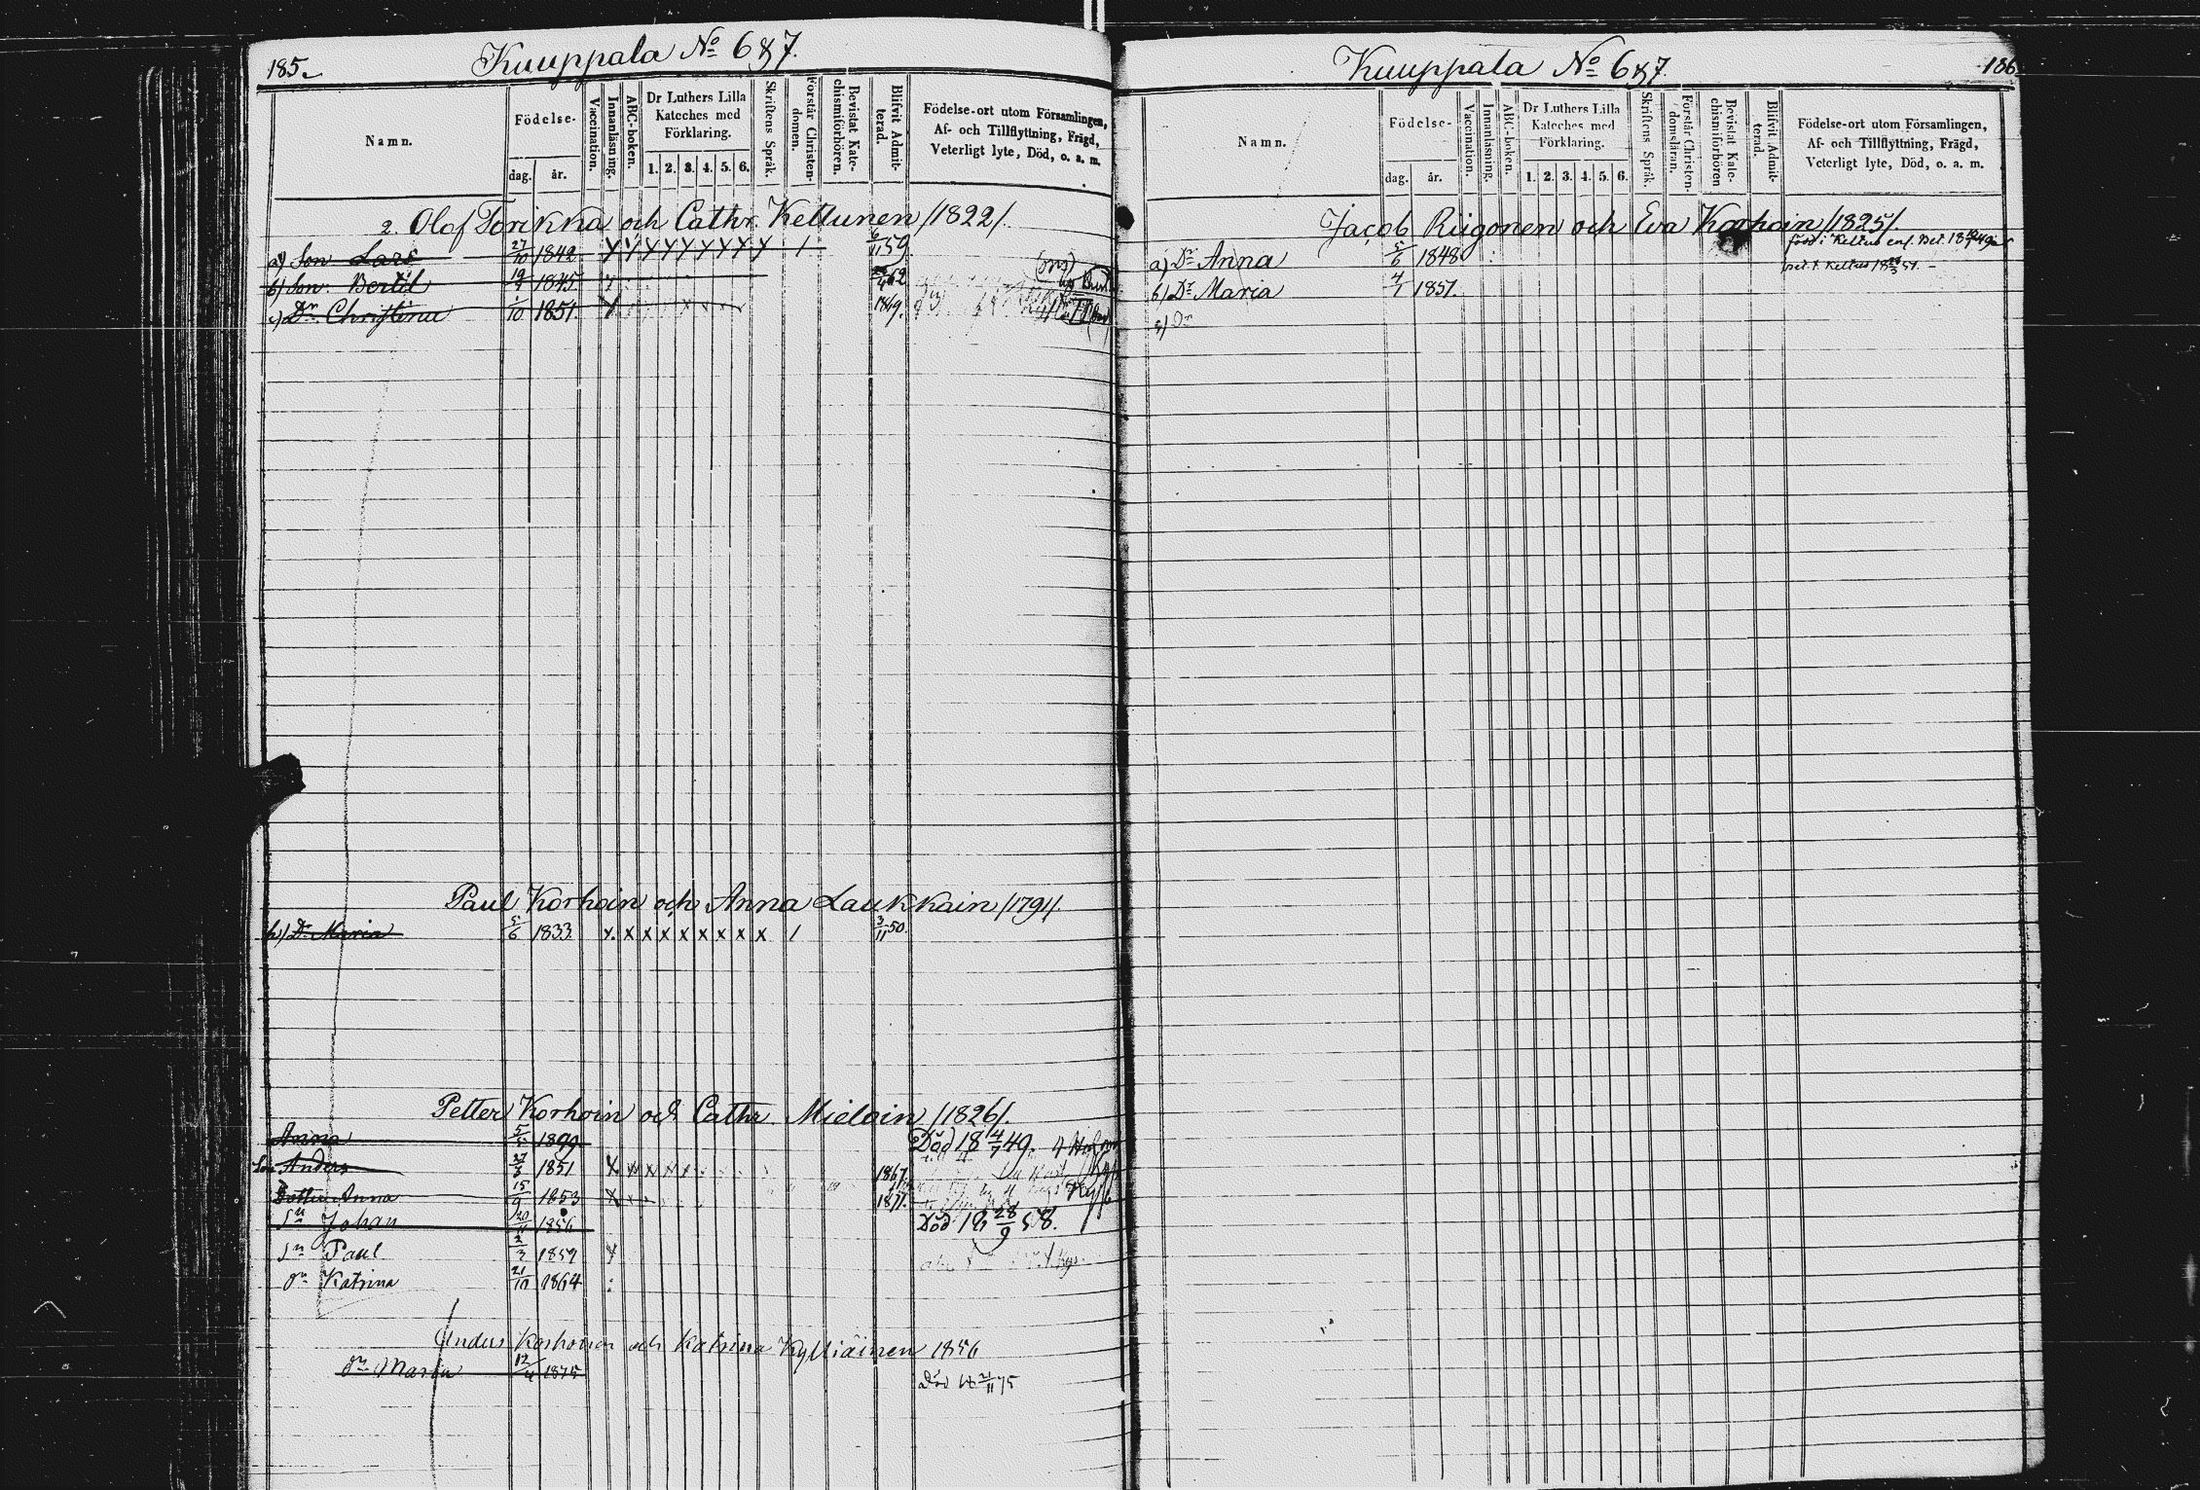 185.
Kuuppala No 6&7.
Namn.
Födelse-
dag.
år.
Vaccination.
Innanläsning.
ABC-boken.
Dr Luthers Lilla
Kateches med
Förklaring.
1. 2. 3. 4. 5. 6.
Skriftens Språk.
Förstår Christen-
domen.
Bevistat Kate-
chismiförhören.
Blifvit Admit-
terad.
Födelse-ort utom Församlingen,
Af- och Tillflyttning, Frägd,
Veterligt lyte, Död, o. a. m.
2. Olof Torikka och Cathr. Kettunen /1822/.
a) Son Lars 27/10 1842 6/11 59.
b) Son Bertil 19/9 1845 62
c) Dr Christina 1/10 1851. 1869.
Paul Korhoin och Anna Laukkain /1791/.
h) Dr Maria 5/6 1833 x x x x x x x x 1 3/11 50.
Petter Korhoin och Cathr. Mieloin /1826/.
Anna 5/5 1899 Död 18 4/7 49.
Son Anders 27/8 1851 x x x x x 1867.
Dotter Anna 15/9 1853 x x x 1871.
Sn Johan 20/11 1856 Död 18 28/9 58.
Sn Paul 2/3 1859
Dr Katrina 21/10 1864
Anders Korhonen och Katrina Kylliäinen 1856
Dr Maria 12/4 1875 Död 18 21/11 75
Kuuppala No 6&7.
186.
Namn.
Födelse-
dag.
år.
Vaccination.
Innanläsning.
ABC-boken.
Dr Luthers Lilla
Kateches med
Förklaring.
1. 2. 3. 4. 5. 6.
Skriftens Språk.
Förstår Christen-
domsläran.
Bevistat Kate-
chismiförhören
Blifvit Admit-
terad.
Födelse-ort utom Församlingen,
Af- och Tillflyttning, Frägd,
Veterligt lyte, Död, o. a. m.
Jacob Riigonen och Eva Korhoin /1825/.
a) Dr Anna 5/6 1848 född i Keltus enl. Bet.
b) Dr Maria 4/1 1851.
c) Dr